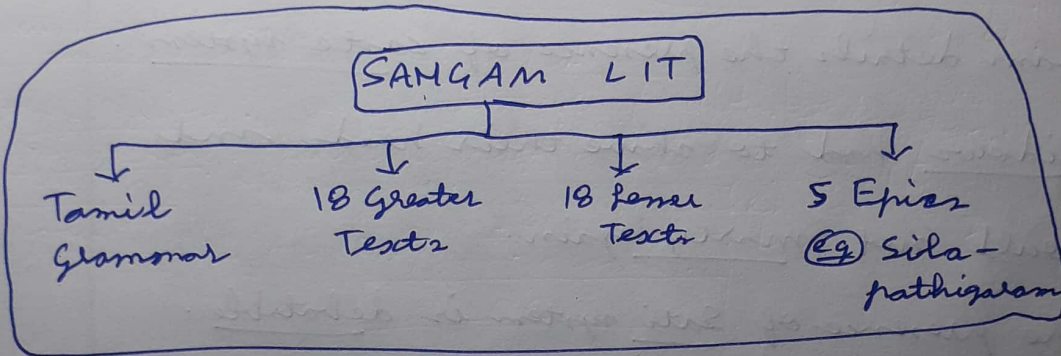 SAMGAM LIT
Tamil
Grammar
18 Greater
Texts
18 Lesser
Texts
5 Epics
eg Sila-
pathigaram